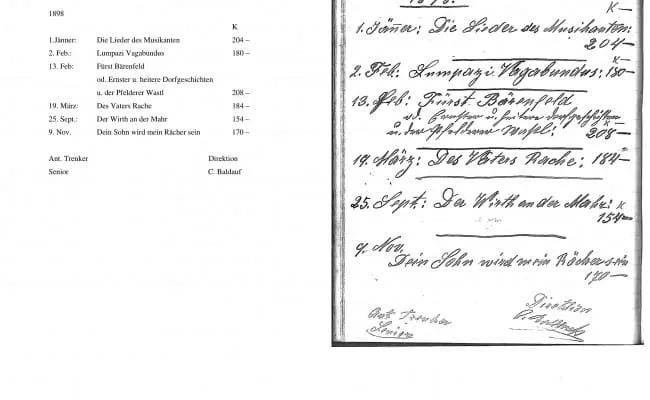 1898
K
1.Jänner: Die Lieder des Musikanten 204 –
2. Feb.: Lumpazi Vagabundus 180 –
13. Feb: Fürst Bärenfeld
od. Ernster u. heitere Dorfgeschichten
u. der Pfelderer Wastl 208 –
19. März: Des Vaters Rache 184 –
25. Sept.: Der Wirth an der Mahr 154 –
9. Nov. Dein Sohn wird mein Rächer sein 170 –
Ant. Trenker Direktion
Senior C. Baldauf
1898.
K –
1. Jänner: Die Lieder des Musikanten:
204 –
K –
2. Feb: Lumpazi Vagabundus: 180 –
13. Feb: Fürst Bärenfeld
od. Ernster u. heitere Dorfgeschichten
u. der Pfelderer Wastl: 208 –
19. März: Des Vaters Rache: 184 –
25. Sept: Der Wirth an der Mahr: K
154 –
9. Nov.
Dein Sohn wird mein Rächer sein
170 –
Direktion
Ant Trenker C. Baldauf
Senior